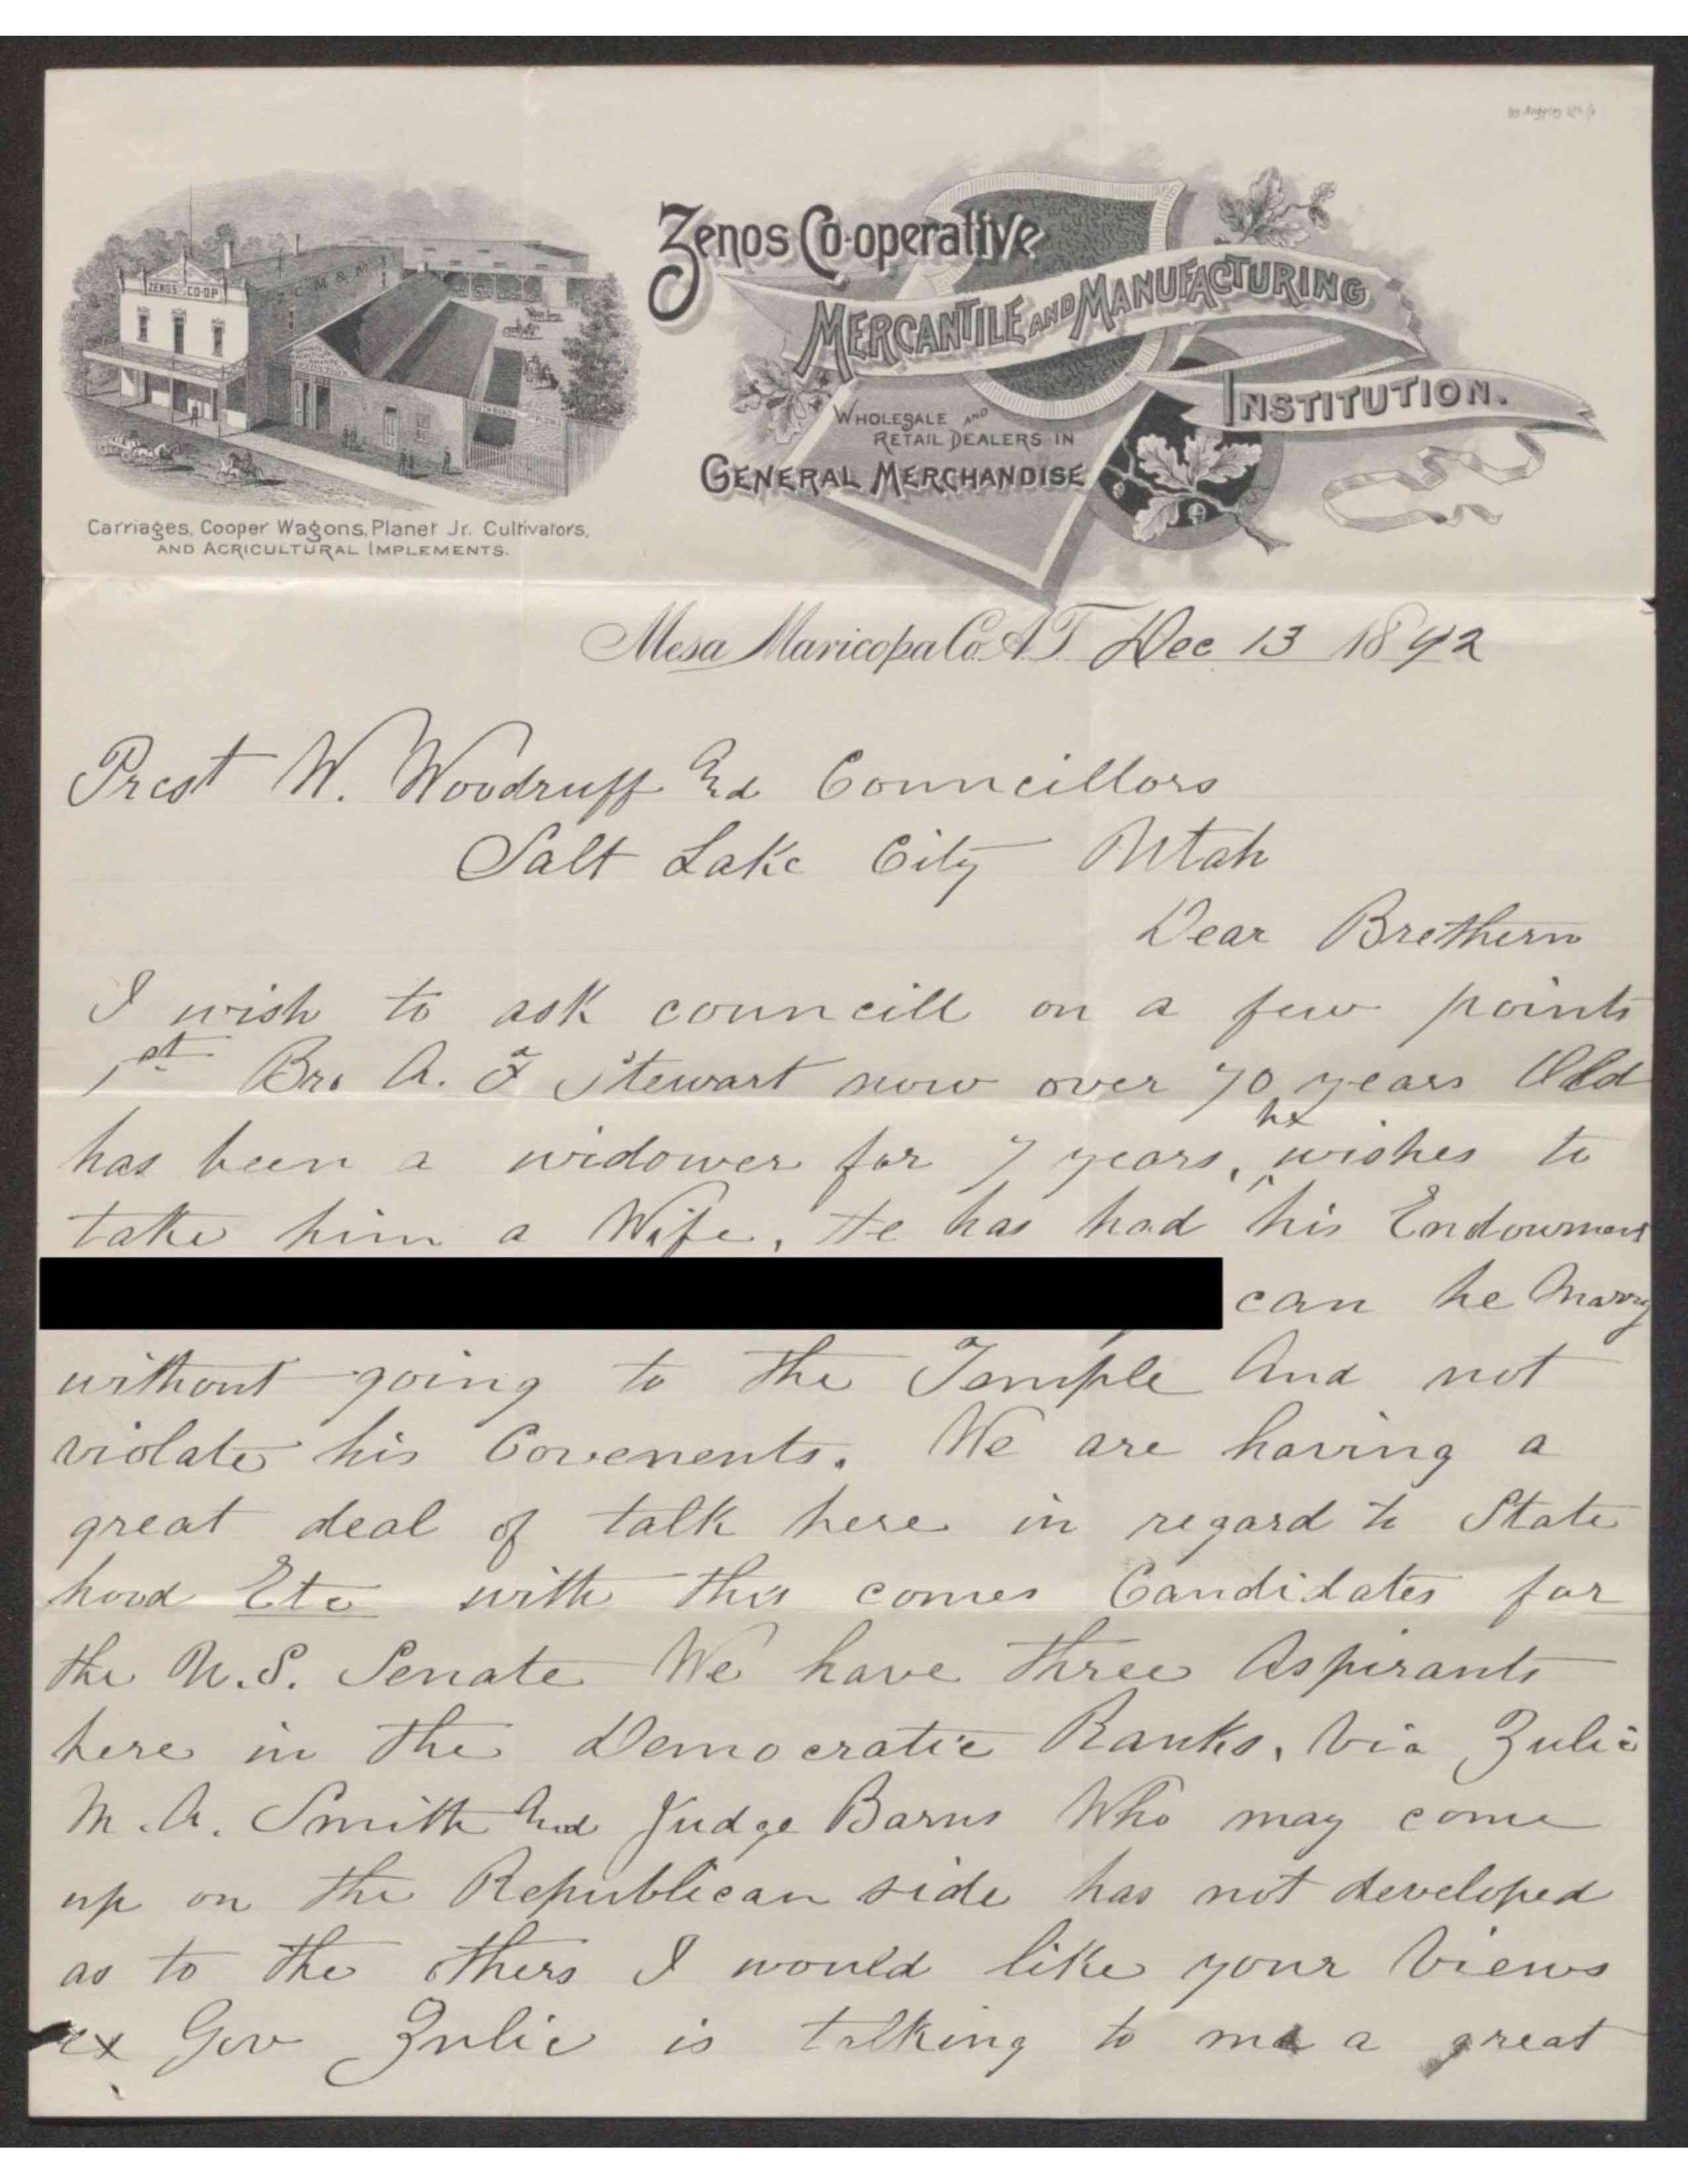 ZENOS CO-OP
Z.C.M.&M.I.
Zenos Co-operative
MERCANTILE AND MANUFACTURING
INSTITUTION.
WHOLESALE AND
RETAIL DEALERS IN
GENERAL MERCHANDISE
Carriages, Cooper Wagons, Planet Jr. Cultivators,
AND AGRICULTURAL IMPLEMENTS.
Mesa Maricopa Co. A.T. Dec 13 1892
Prest W. Woodruff And Councillors
Salt Lake City Utah
Dear Brethern
I wish to ask councill on a few points
1st Bro A. F Stewart now over 70 years Old
has been a widower for 7 years, he wishes to
take him a Wife, He has had his Endowment
can he Marry
without going to the Temple And not
violate his Covenents. We are having a
great deal of talk here in regard to State
hood Etc with this comes Candidates for
the U.S. Senate We have three Aspirants
here in the Democratic Ranks, Via Zulic
M. A. Smith And Judge Barns Who may come
up on the Republican side has not developed
as to the others I would like your Views
ex Gov Zulic is talking to me a great